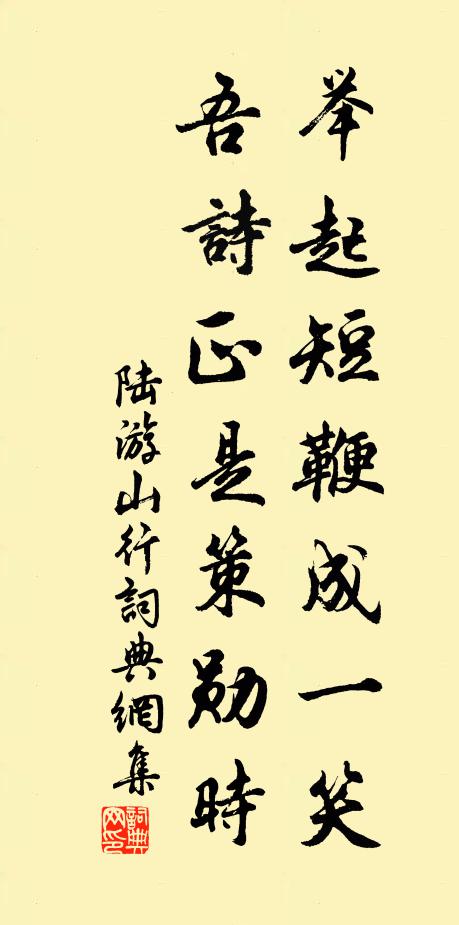 举起短鞭成一笑
吾詩正是策勋時
陆游山行詞典網集
詞典网印